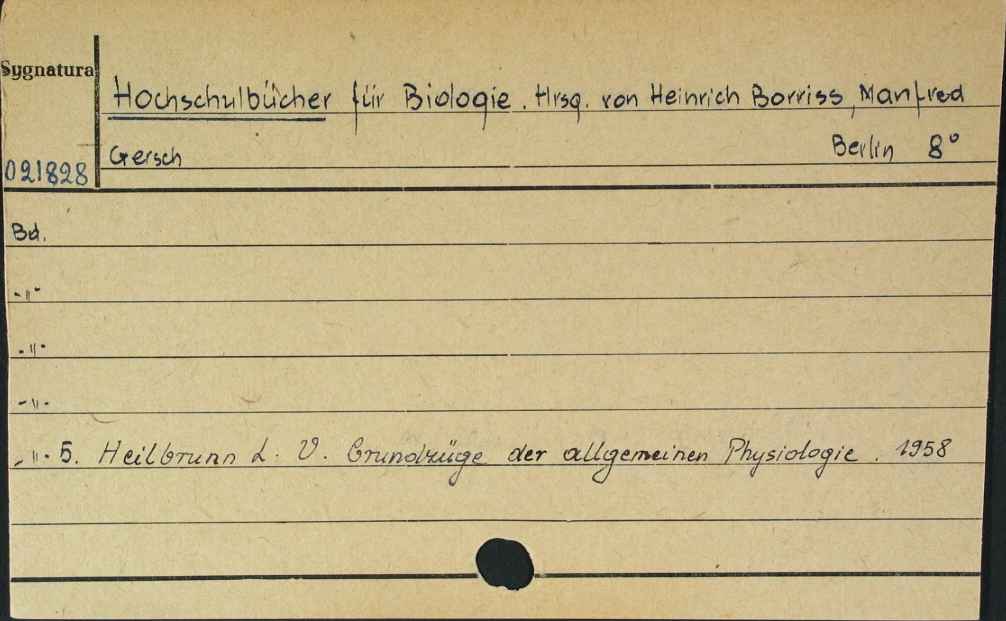 Sygnatura
Hochschulbücher für Biologie. Hrsg. von Heinrich Borriss, Manfred
Gersch Berlin 8°
021828
Bd.
-"-
-"-
-"-
-"- 5. Heilbrunn L. V. Grundzüge der allgemeinen Physiologie. 1958